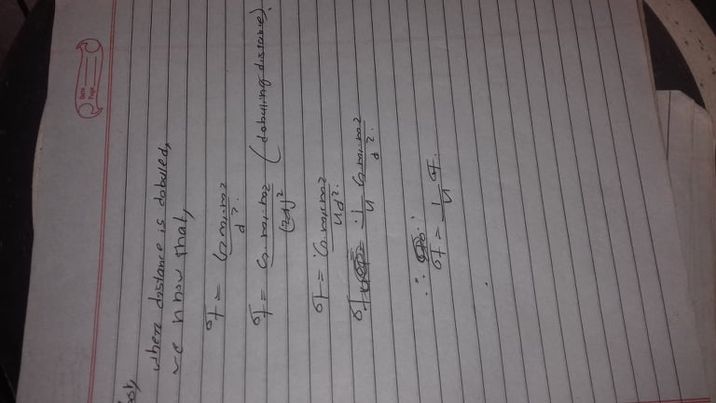 when distance is dobuled,
we know that,
F = G.m1.m2 / d².
F = G.m1.m2 / (2d)² (dobuling distance).
F = G.m1.m2 / 4d².
F = 1/4 G.m1.m2 / d².
∴ F = 1/4 F.
Date
Page